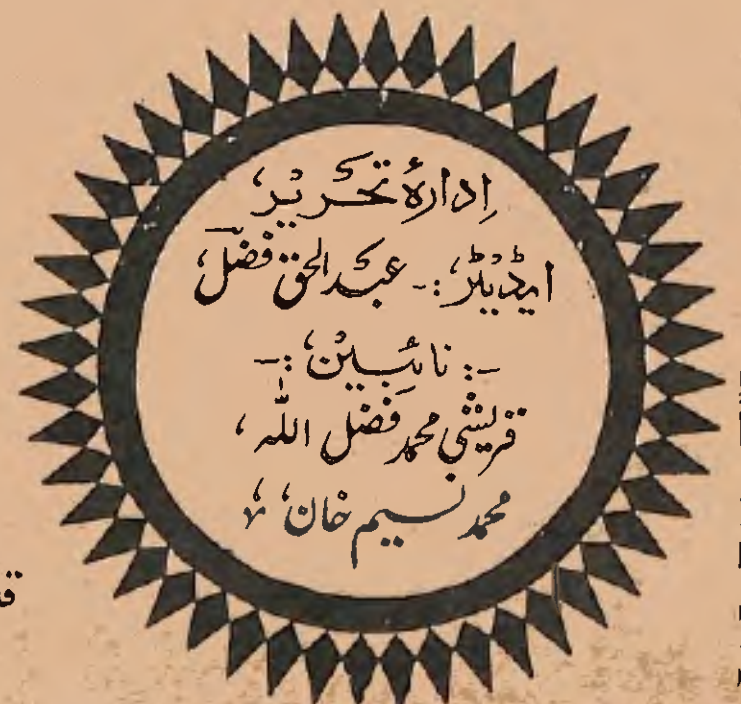 اِدارۂ تحریر،
ایڈیٹر:۔ عبدالحق فضلؔ،
۔: نائبین:۔
قریشی محمد فضل اللہ،
محمد نسیم خان،